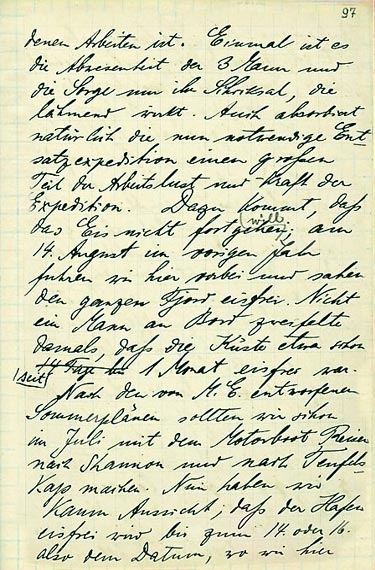 97
denen Arbeiten ist. Einmal ist es
die Abwesenheit der 3 Mann und
die Sorge um ihr Schicksal, die
lähmend wirkt. Auch absorbiert
natürlich die nun notwendige Ent-
satzexpedition einen großen
Teil der Arbeitslust und Kraft der
Expedition. Dazu kommt, daß
das Eis nicht fortgehen will; am
14. August im vorigen Jahr
fuhren wir hier vorbei und sahen
den ganzen Fjord eisfrei. Nicht
ein Mann an Bord zweifelte
damals, daß die Küste etwa schon
seit 1 Monat eisfrei war.
Nach den von M. E. entworfenen
Sommerplänen sollten wir schon
im Juli mit dem Motorboot Reisen
nach Shannon und nach Teufels-
Kap machen. Nun haben wir
kaum Aussicht, daß der Hafen
eisfrei wird bis zum 14. oder 16.
also dem Datum, wo wir hier